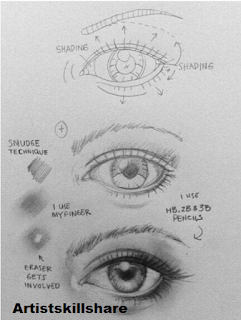 SHADING
SHADING
SMUDGE
TECHNIQUE
I USE
MY FINGER
I USE
HB, 2B & 3B
PENCILS
ERASER
GETS
INVOLVED
Artistskillshare